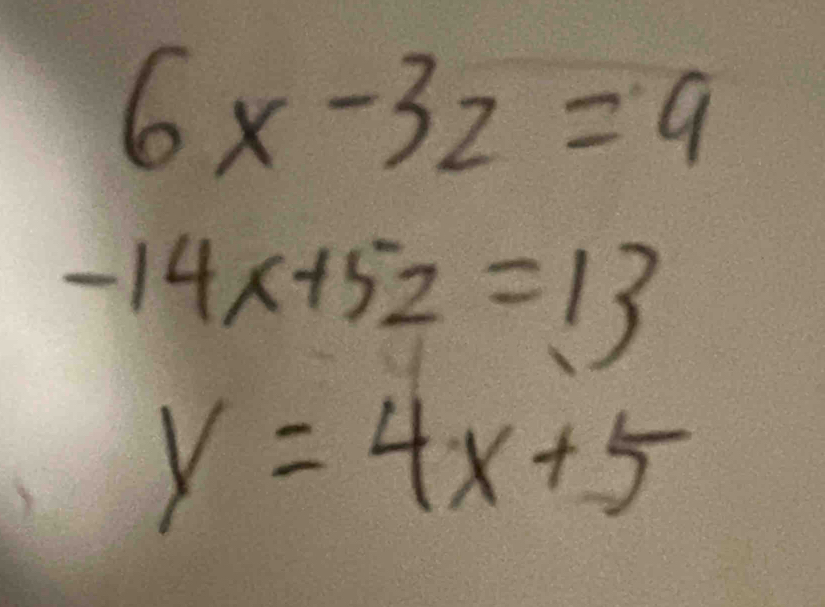 6x - 3z = 9
-14x + 5z = 13
y = 4x + 5